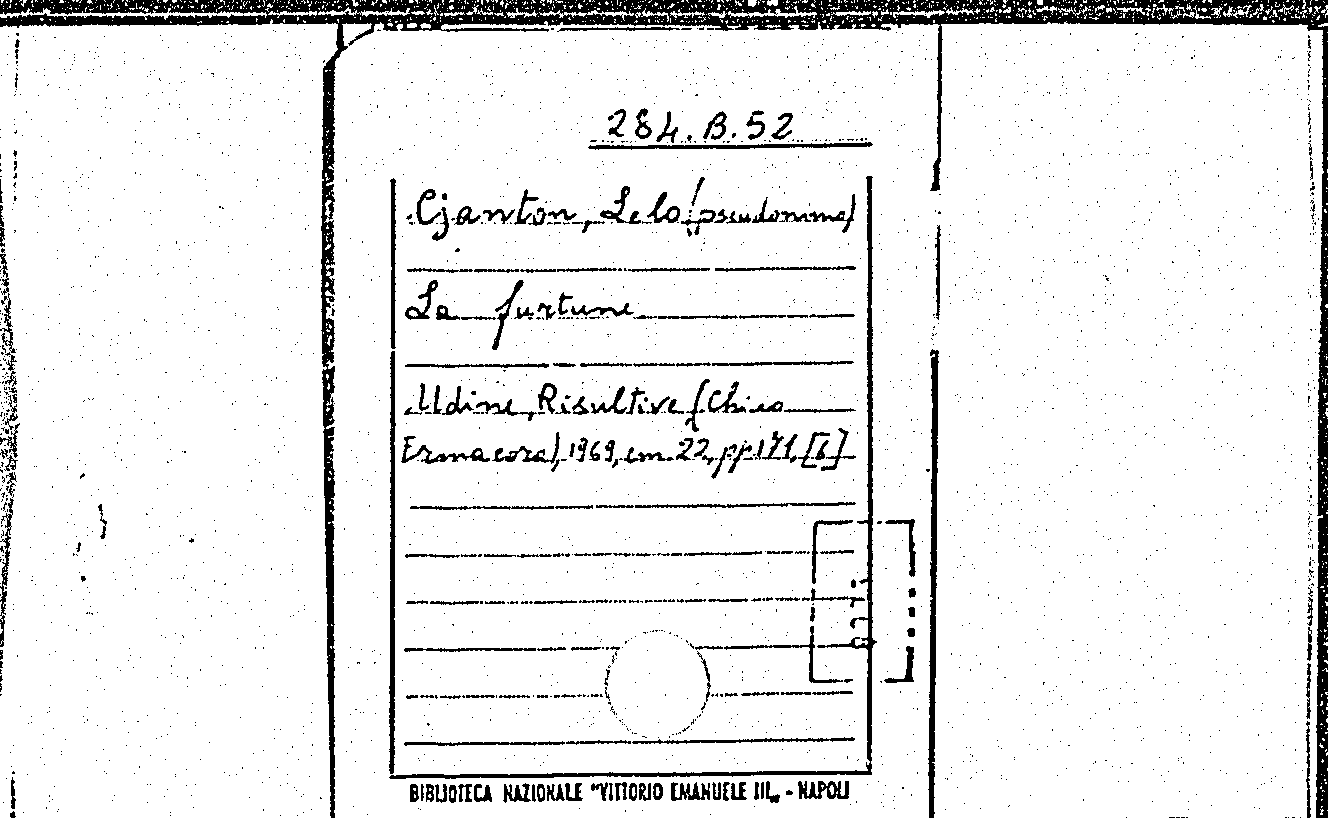 284.B.52
Cjanton, Lelo (pseudonimo)
La furtune
Udine, Risultive (Chino
Ermacora), 1969, cm. 22, pp. 171, [6]
BIBLIOTECA NAZIONALE "VITTORIO EMANUELE III„ - NAPOLI